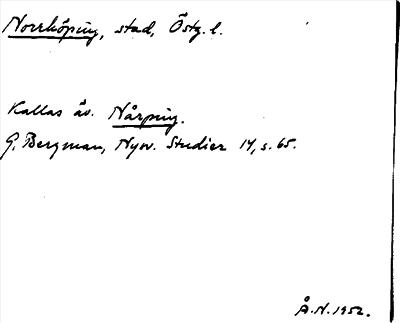 Norrköping, stad, Östg. l.
Kallas äv. Nårping.
G. Bergman, Nysv. Studier 14, s. 65.
Å.N. 1952.